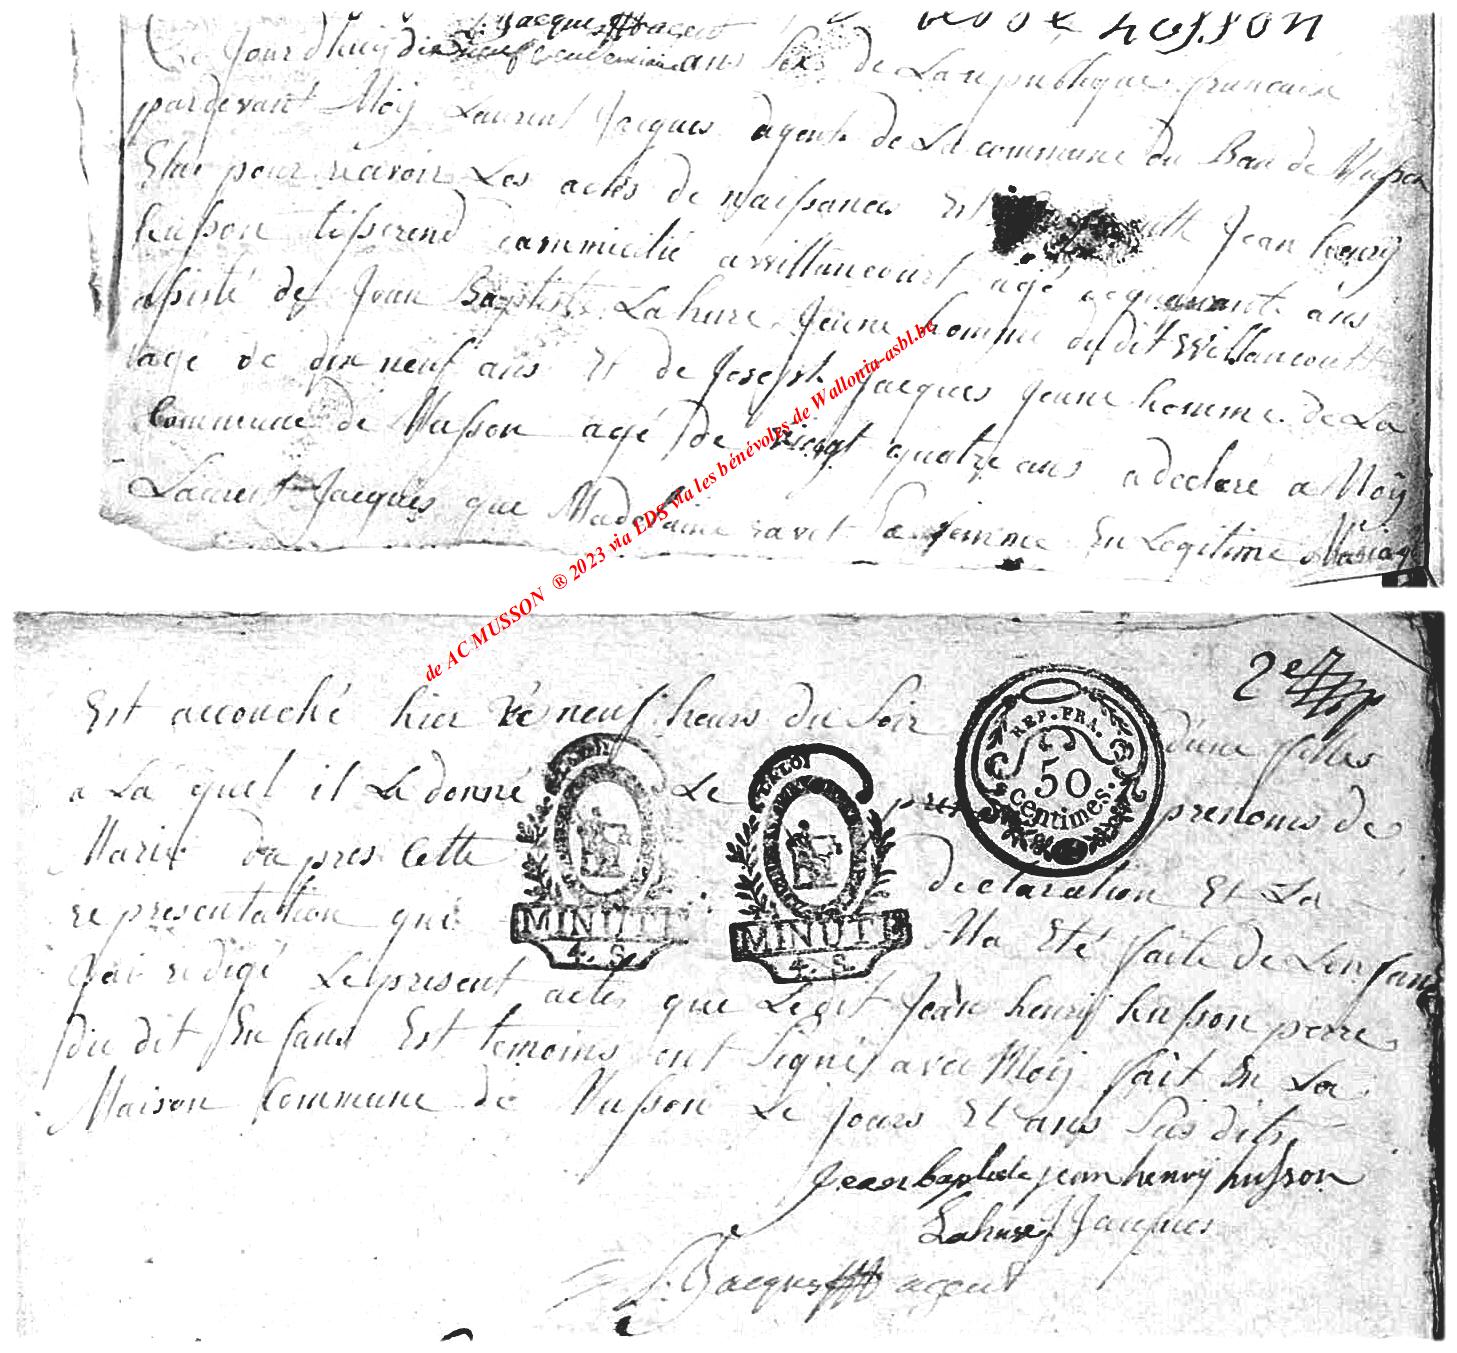 L. Jacques agent
husson
Ce jourdhuy dix neuf vendemiaire ans six de La republique francaise
pardevant Moÿ Laurent Jacques agent de La commune du Ban de Musson
Elu pour recevoir Les actes de naissances Est Jean henrÿ
husson tisserend dommicilié a willancourt agé de quarante ans
assisté de Jean Baptiste Lahure Jeune homme du dit Willancourt
agé de dix neuf ans Et de Joseph Jacques Jeune homme de La
Commune de Musson agé de vingt quatre ans a declaré a Moÿ
Laurent Jacques que Madelaine ravet Sa femme En Legitime Mariage
de AC MUSSON ® 2023 via LDS via les bénévoles de Wallonia-asbl.be
2e
Est accouché hier neuf heurs du Soir d'une filles
a La quel il a donné Le prenoms de
Marie da pres Cette declaration Et La
representation qui Ma Eté faite de Lenfans
Jai redigé Le present actes que Le dit Jean henrÿ husson perre
du dit Enfans Est temoins ont Signé avec Moÿ fait En La
Maison Commune de Musson Le Jours Et ans Sus dits
REP. FRA.
50
centimes.
LA LOI
MINUTE
4. S.
MINUTE
4. S.
Jean baptiste jean henrÿ husson
Lahure J Jacques
L. Jacques agent